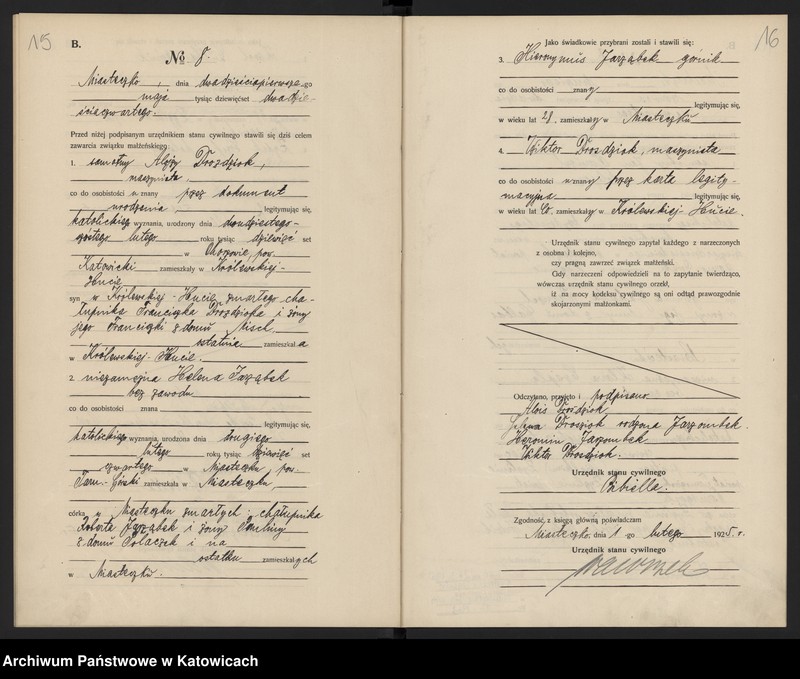 15
B.
№ 8.
Miasteczko, dnia dwadzieściapierwszego
maja tysiąc dziewięćset dwadzie-
ściaczwartego.
Przed niżej podpisanym urzędnikiem stanu cywilnego stawili się dziś celem
zawarcia związku małżeńskiego:
1. samotny Alojzy Drozdziok,
maszynista,
co do osobistości u znany przez dokument
urodzenia, legitymując się,
katolickiego wyznania, urodzony dnia dwudziestego-
szóstego lutego roku tysiąc dziewięć set
w Chorzowie, pow.
Katowicki zamieszkały w Królewskiej-
Hucie
syn w Królewskiej-Hucie zmarłego cha-
łupnika Franciszka Drozdzioka i żony
jego Franciszki z domu
ostatnio zamieszkała
w Królewskiej-Hucie.
2. niezamężna Helena Jarząbek
bez zawodu
co do osobistości znana
legitymując się,
katolickiego wyznania, urodzona dnia drugiego
lutego roku tysiąc dziewięć set
czwartego w Miasteczku, pow.
Tarn-Górski zamieszkała w Miasteczku,
córka w Miasteczku zmarłych: chałupnika
Roberta Jarząbek i żony Pauliny
z domu Polaczek i na
ostatku zamieszkałych
w Miasteczku.
16
Jako świadkowie przybrani zostali i stawili się:
3. Hieronymus Jarząbek górnik
co do osobistości znany
legitymując się,
w wieku lat 28, zamieszkały w Miasteczku
4. Wiktor Drosdziok, maszynista
co do osobistości uznany przez karta legity-
macyjna legitymując się,
w wieku lat zamieszkały w Królewskiej-Hucie.
Urzędnik stanu cywilnego zapytał każdego z narzeczonych
z osobna i kolejno,
czy pragną zawrzeć związek małżeński.
Gdy narzeczeni odpowiedzieli na to zapytanie twierdząco,
wówczas urzędnik stanu cywilnego orzekł,
iż na mocy kodeksu cywilnego są oni odtąd prawozgodnie
skojarzonymi małżonkami.
Odczytano, przyjęto i podpisano.
Alois Drosdziok
Helena Drosdziok rodzona Jarzombek.
Hieronim Jarzombek
Wiktor Drosdziok.
Urzędnik stanu cywilnego
Bibiella.
Zgodność z księgą główną poświadczam
Miasteczko, dnia 1 -go lutego 1925 r.
Urzędnik stanu cywilnego
Archiwum Państwowe w Katowicach